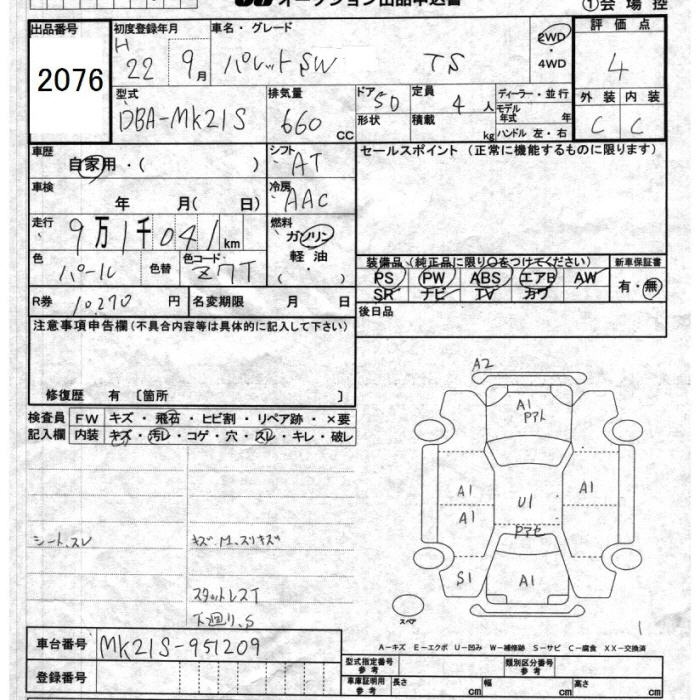 オークション出品申込書
①会場控
出品番号 初度登録年月 車名・グレード 評価点
2076 H 22 9月 パレットSW TS 2WD ・ 4WD 4
型式 排気量 ドア 定員 ディーラー・並行 外装 内装
DBA-MK21S 660 CC 5D 4人 モデル年式 年 C C
形状 積載 kg ハンドル 左・右
車歴 シフト セールスポイント (正常に機能するものに限ります)
自家用・( ) AT
車検 冷房
年 月( 日) AAC
走行 燃料
9万1千041km ガソリン
軽油
( ・ )
色 色替 色コード 装備品(純正品に限り○をつけてください) 新車保証書
パール Z7T PS PW ABS エアB AW 有・無
SR ナビ TV カワ
R券 10,270 円 名変期限 月 日 後日品
注意事項申告欄(不具合内容等は具体的に記入して下さい)
修復歴 有 〔箇所 〕
検査員 FW キズ・飛石・ヒビ割・リペア跡・×要
記入欄 内装 キズ・汚レ・コゲ・穴・スレ・キレ・破レ
A2
A1
Pアト
A1 A1
A1 U1
Pアセ
S1 A1
シート、スレ キズ、M、スリキズ
スタットレスT
下廻り、S
スペア
1
車台番号 MK21S-951209
A-キズ E-エクボ U-凹み W-補修跡 S-サビ C-腐食 XX-交換済
登録番号 型式指定番号 参考 類別区分番号 参考
車庫証明用 参考 長さ cm 幅 cm 高さ cm